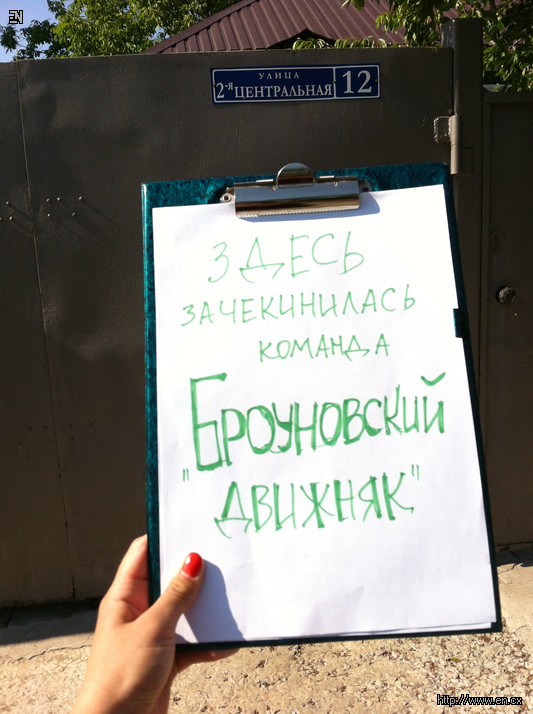 EN
УЛИЦА
2-Я ЦЕНТРАЛЬНАЯ 12
ЗДЕСЬ
ЗАЧЕКИНИЛАСЬ
КОМАНДА
"БРОУНОВСКИЙ
ДВИЖНЯК"
http://www.en.cx